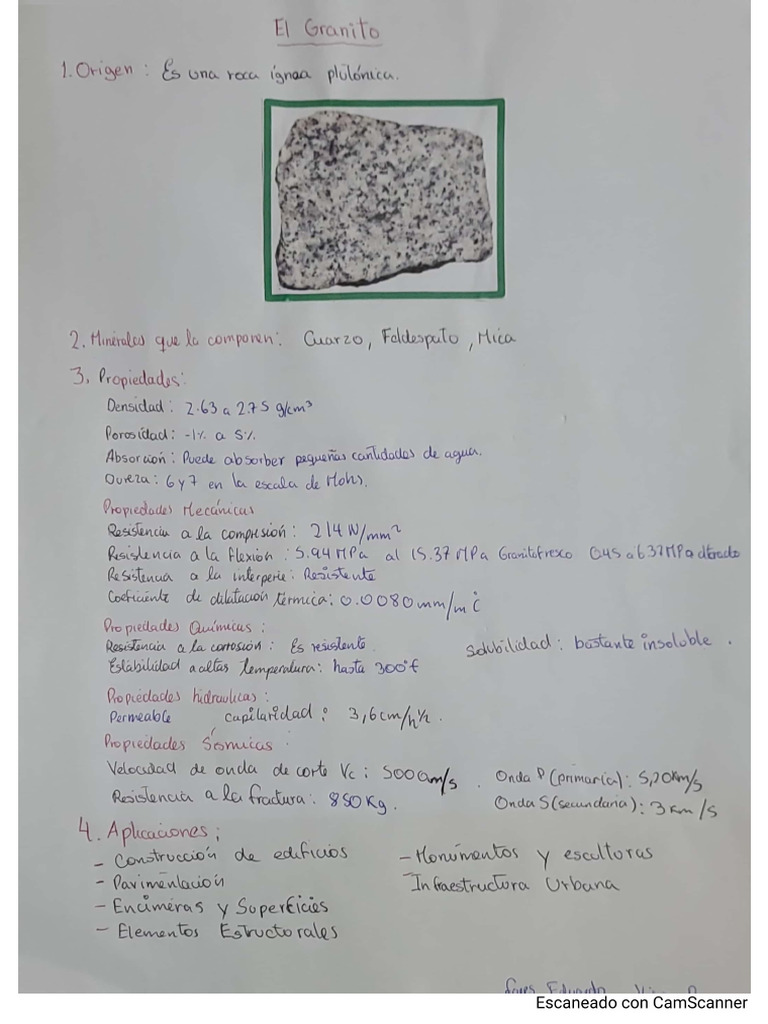 El Granito
1. Origen : Es una roca ígnea plutónica.
2. Minerales que la componen: Cuarzo, Feldespato, Mica
3. Propiedades:
Densidad: 2.63 a 2.75 g/cm³
Porosidad: -1% a 5%
Absorción: Puede absorber pequeñas cantidades de agua.
Dureza: 6 y 7 en la escala de Mohs.
Propiedades Mecánicas
Resistencia a la compresión: 214 N/mm²
Resistencia a la flexión: 5.94 MPa al 15.37 MPa Granito fresco 0.45 a 6.37 MPa alterado
Resistencia a la interperie: Resistente
Coeficiente de dilatación térmica: 0.0080 mm/m°C
Propiedades Químicas:
Resistencia a la corrosión: Es resistente. Solubilidad: bastante insoluble.
Estabilidad a altas temperatura: hasta 300°f
Propiedades hidraulicas:
Permeable Capilaridad: 3,6 cm/h½.
Propiedades Sísmicas
Velocidad de onda de corte Vc: 500 m/s. Onda P (primaria): 5,20 Km/s
Resistencia a la fractura: 850 Kg. Onda S (secundaria): 3 Km/s
4. Aplicaciones:
- Construcción de edificios - Monumentos y esculturas
- Pavimentación Infraestructura Urbana
- Encimeras y Superficies
- Elementos Estructorales
Eduardo
Escaneado con CamScanner